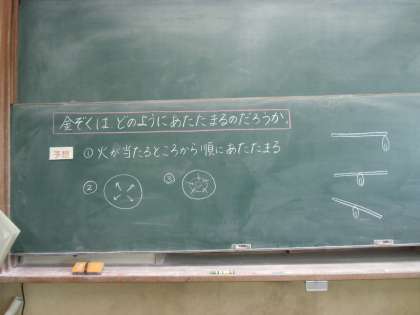 金ぞくは どのようにあたたまるのだろうか。
予想 ①火が当たるところから順にあたたまる
② ③